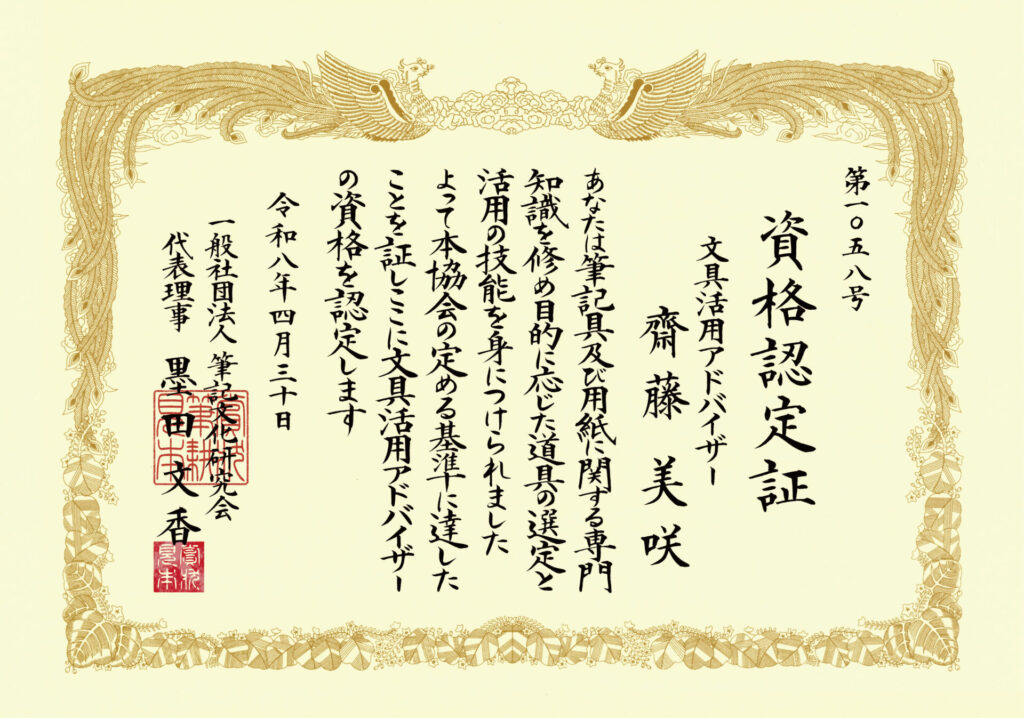 第一〇五八号
資格認定証
文具活用アドバイザー
齋藤美咲
あなたは筆記具及び用紙に関する専門
知識を修め目的に応じた道具の選定と
活用の技能を身につけられました
よって本協会の定める基準に達した
ことを証しここに文具活用アドバイザー
の資格を認定します
令和八年四月三十日
一般社団法人 筆記文化研究会
代表理事 墨田文香